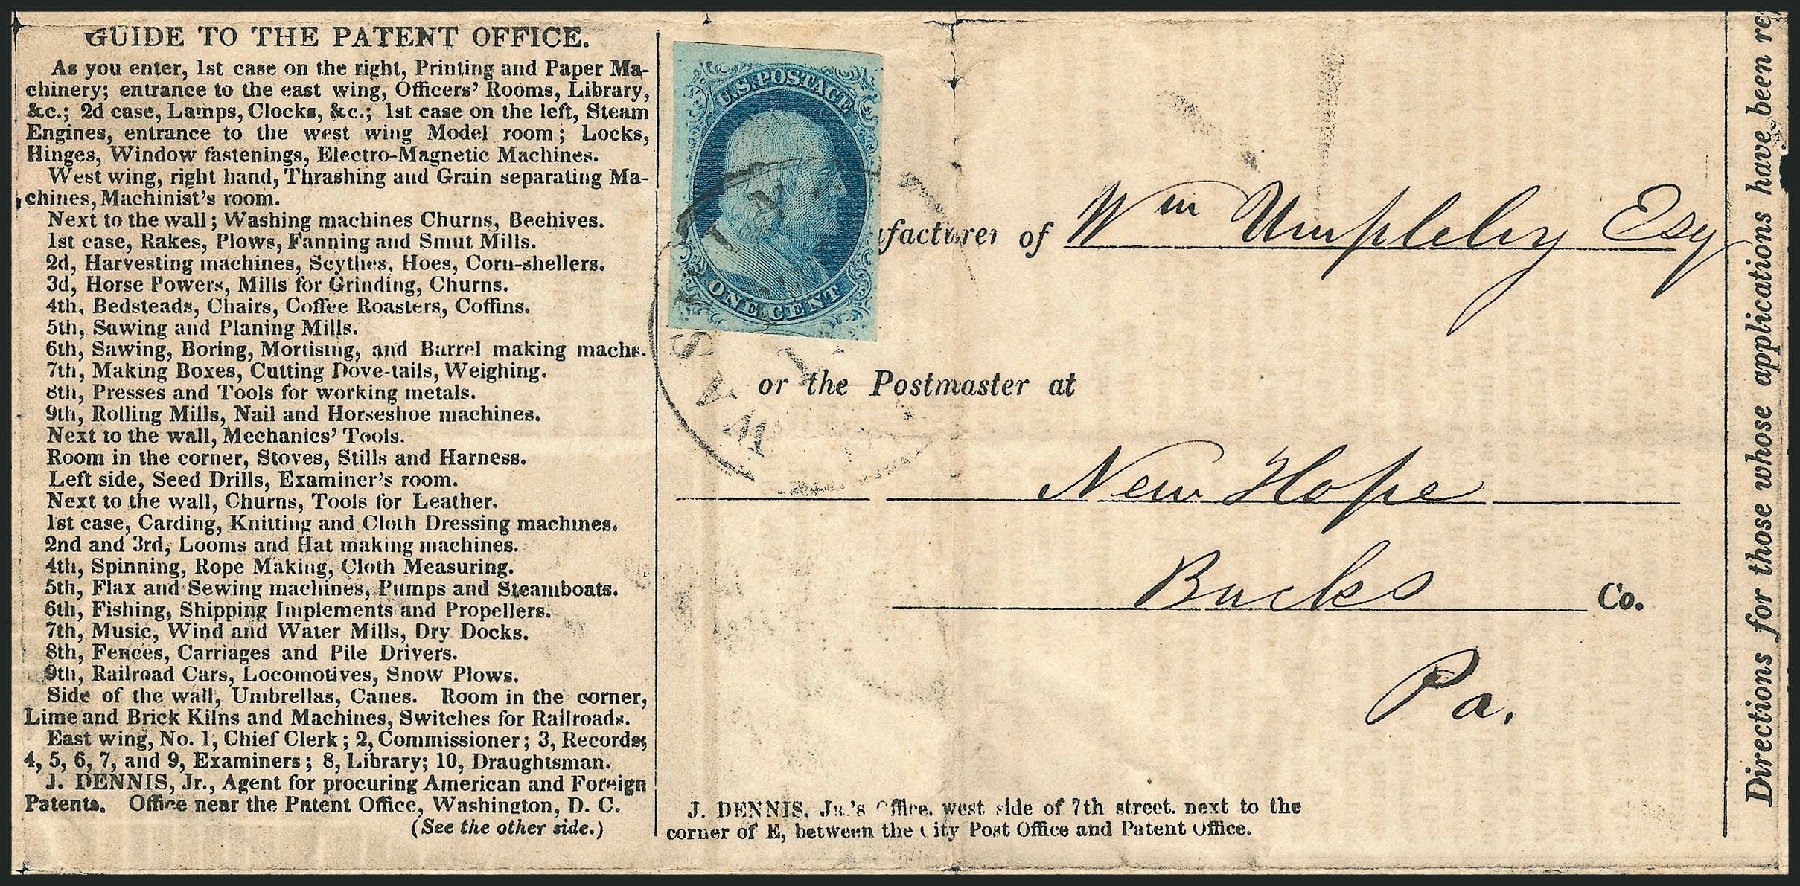 GUIDE TO THE PATENT OFFICE.
As you enter, 1st case on the right, Printing and Paper Ma-
chinery; entrance to the east wing, Officers' Rooms, Library,
&c.; 2d case, Lamps, Clocks, &c.; 1st case on the left, Steam
Engines, entrance to the west wing Model room; Locks,
Hinges, Window fastenings, Electro-Magnetic Machines.
West wing, right hand, Thrashing and Grain separating Ma-
chines, Machinist's room.
Next to the wall; Washing machines Churns, Beehives.
1st case, Rakes, Plows, Fanning and Smut Mills.
2d, Harvesting machines, Scythes, Hoes, Corn-shellers.
3d, Horse Powers, Mills for Grinding, Churns.
4th, Bedsteads, Chairs, Coffee Roasters, Coffins.
5th, Sawing and Planing Mills.
6th, Sawing, Boring, Mortising, and Barrel making machs.
7th, Making Boxes, Cutting Dove-tails, Weighing.
8th, Presses and Tools for working metals.
9th, Rolling Mills, Nail and Horseshoe machines.
Next to the wall, Mechanics' Tools.
Room in the corner, Stoves, Stills and Harness.
Left side, Seed Drills, Examiner's room.
Next to the wall, Churns, Tools for Leather.
1st case, Carding, Knitting and Cloth Dressing machines.
2nd and 3rd, Looms and Hat making machines.
4th, Spinning, Rope Making, Cloth Measuring.
5th, Flax and Sewing machines, Pumps and Steamboats.
6th, Fishing, Shipping Implements and Propellers.
7th, Music, Wind and Water Mills, Dry Docks.
8th, Fences, Carriages and Pile Drivers.
9th, Railroad Cars, Locomotives, Snow Plows.
Side of the wall, Umbrellas, Canes. Room in the corner,
Lime and Brick Kilns and Machines, Switches for Railroads.
East wing, No. 1, Chief Clerk; 2, Commissioner; 3, Records;
4, 5, 6, 7, and 9, Examiners; 8, Library; 10, Draughtsman.
J. DENNIS, Jr., Agent for procuring American and Foreign
Patents. Office near the Patent Office, Washington, D. C.
(See the other side.)
U.S. POSTAGE
ONE CENT
WAS
ufacturer of Wm Umpleby Esq
or the Postmaster at
New Hope
Bucks Co.
Pa.
J. DENNIS, Jr.'s Office, west side of 7th street, next to the
corner of E, between the City Post Office and Patent Office.
Directions for those whose applications have been re